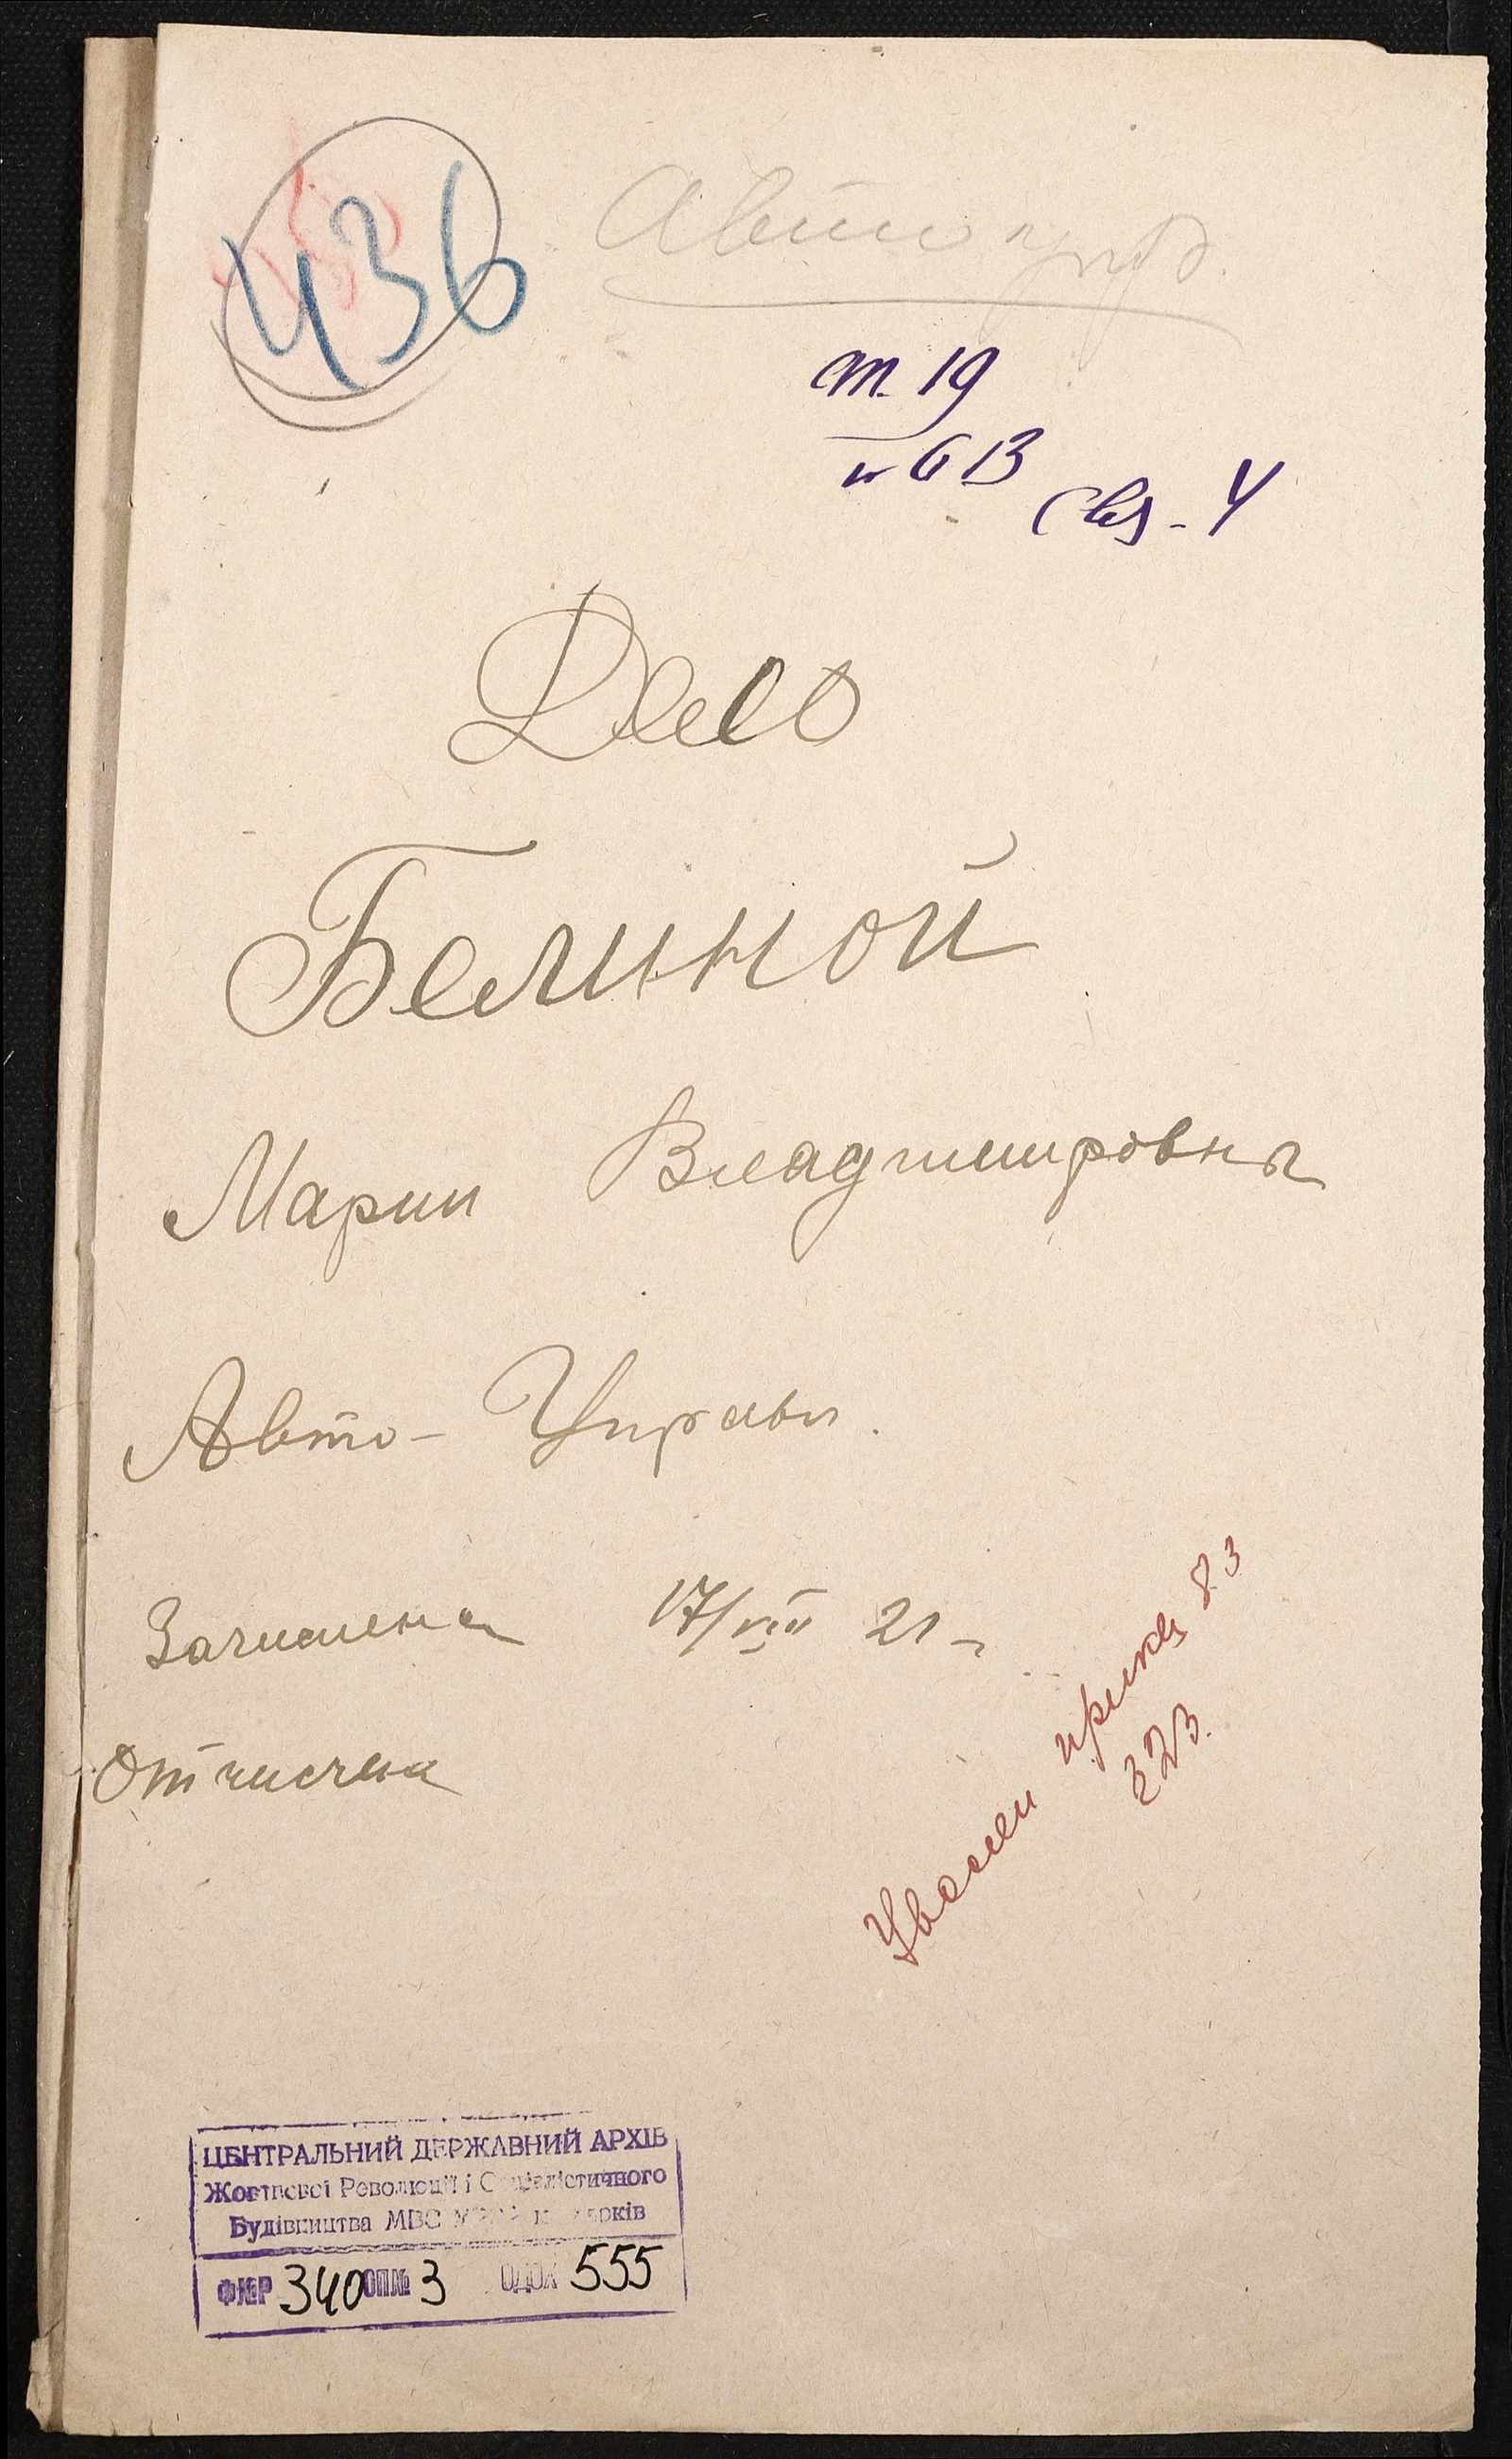 436
Авто упр.
т. 19
н 613
Связ - 4
Дело
Белиной
Марии Владимировны
Авто - Управ.
Зачислена 17/VIII 21 г
Отчислена
Уволен приказ 83
ЦЕНТРАЛЬНИЙ ДЕРЖАВНИЙ АРХІВ
Жовтневої Революції і Соціалістичного
Будівництва МВС УРСР м. Харків
Ф№Р 340 ОП№ 3 ОД.ЗХ 555